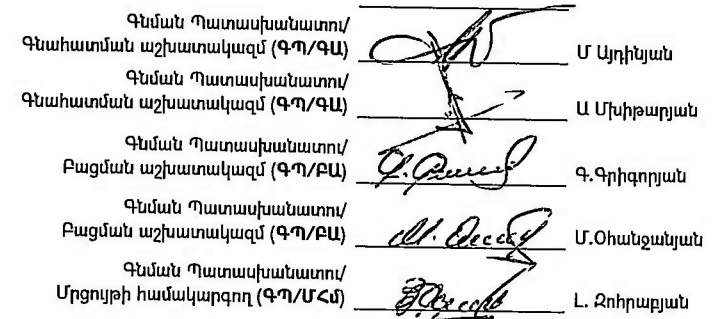 Գնման Պատասխանատու/
Գնահատման աշխատակազմ (ԳՊ/ԳԱ) Մ Այդինյան
Գնման Պատասխանատու/
Գնահատման աշխատակազմ (ԳՊ/ԳԱ) Ա Մխիթարյան
Գնման Պատասխանատու/
Բացման աշխատակազմ (ԳՊ/ԲԱ) Գ.Գրիգորյան
Գնման Պատասխանատու/
Բացման աշխատակազմ (ԳՊ/ԲԱ) Մ.Օհանջանյան
Գնման Պատասխանատու/
Մրցույթի համակարգող (ԳՊ/ՄՀմ) Լ. Զոհրաբյան